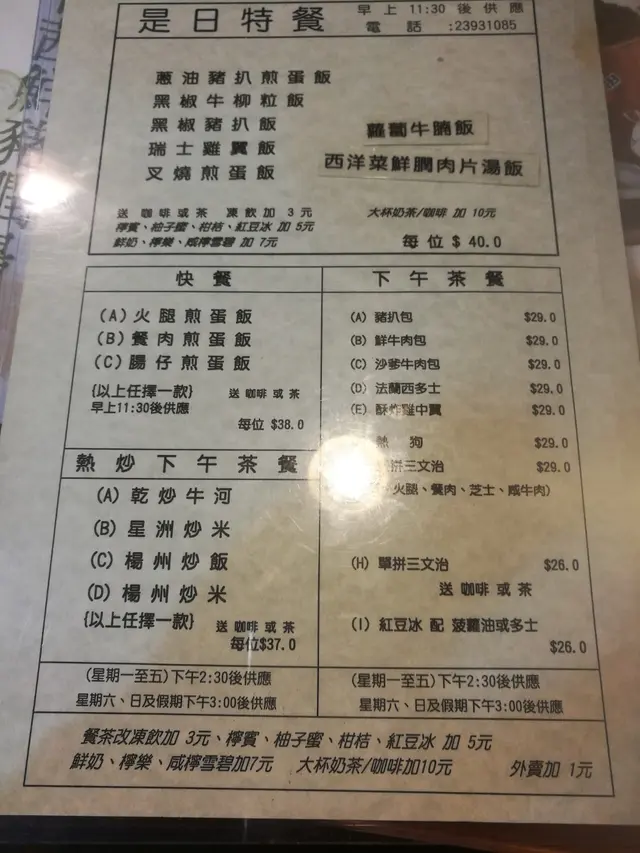 是日特餐
早上 11:30 後供應
電話 :23931085
蔥油豬扒煎蛋飯
黑椒牛柳粒飯
黑椒豬扒飯
瑞士雞翼飯
叉燒煎蛋飯
蘿蔔牛腩飯
西洋菜鮮膶肉片湯飯
送 咖啡 或 茶 凍飲加 3 元
檸賓、柚子蜜、柑桔、紅豆冰 加 5元
鮮奶、檸樂、咸檸雪碧 加 7元
大杯奶茶/咖啡 加 10元
每位 $ 40.0
快餐
(A) 火腿煎蛋飯
(B) 餐肉煎蛋飯
(C) 腸仔煎蛋飯
{以上任擇一款} 送 咖啡 或 茶
早上11:30後供應
每位 $38.0
熱炒下午茶餐
(A) 乾炒牛河
(B) 星洲炒米
(C) 楊州炒飯
(D) 楊州炒米
{以上任擇一款} 送 咖啡 或 茶
每位$37.0
(星期一至五)下午2:30後供應
星期六、日及假期下午3:00後供應
下午茶餐
(A) 豬扒包 $29.0
(B) 鮮牛肉包 $29.0
(C) 沙爹牛肉包 $29.0
(D) 法蘭西多士 $29.0
(E) 酥炸雞中翼 $29.0
熱狗 $29.0
拼三文治 $29.0
火腿、餐肉、芝士、咸牛肉)
(H) 單拼三文治 $26.0
送 咖啡 或 茶
(I) 紅豆冰 配 菠蘿油或多士
$26.0
(星期一至五)下午2:30後供應
星期六、日及假期下午3:00後供應
餐茶改凍飲加 3元、檸賓、柚子蜜、柑桔、紅豆冰 加 5元
鮮奶、檸樂、咸檸雪碧加7元 大杯奶茶/咖啡加10元 外賣加 1元